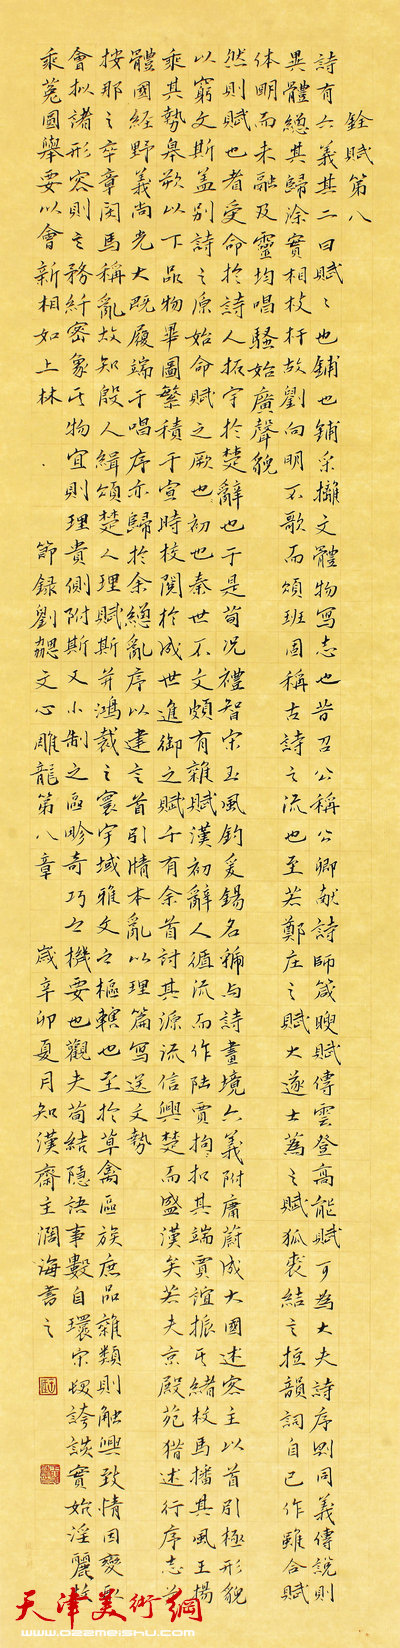 銓賦第八
詩有六義其二曰賦々也鋪也鋪采摛文體物寫志也昔召公稱公卿献詩師箴瞍賦傳雲登高能賦可為大夫詩序則同義傳說則
異體總其歸涂實相枝杆故劉向明不歌而頌班固稱古詩之流也至若鄭庄之賦大遂士蒍之賦狐裘結之拒韻詞自己作雖合賦
体明而未融及靈均唱騷始廣聲貌
然則賦也者受命扵詩人拓宇扵楚辭也于是荀況禮智宋玉風鈞爰錫名稱与詩畫境六義附庸蔚成大國述客主以首引極形貌
以窮文斯盖别詩之原始命賦之厥也初也秦世不文頗有雜賦漢初辭人循流而作陸賈拘扣其端賈誼振其緒枚馬播其風王揚
乘其勢皋朔以下品物畢圖繁積于宣時校閱扵成世進御之賦千有余首討其源流信興楚而盛漢矣若夫京殿苑猎述行序志
體國経野義尚光大既履端于唱序亦歸扵余總亂序以建言首引情本亂以理篇寫送文勢
按那之卒章闵馬稱亂故知殷人緝頌楚人理賦斯并鸿裁之寰宇域雅文之樞轄也至扵草禽區族庶品雜類則触興致情因變
會拟諸形容則言務纤密象其物宜則理貴側附斯又小制之區畛奇巧之機要也觀夫荀結隱語事數自環宋發誇談實始淫麗枚
乘菟園舉要以會新相如上林 節録劉勰文心雕龍第八章 歲辛卯夏月知漢齋主濶海書之
天津美術網
www.022meishu.com